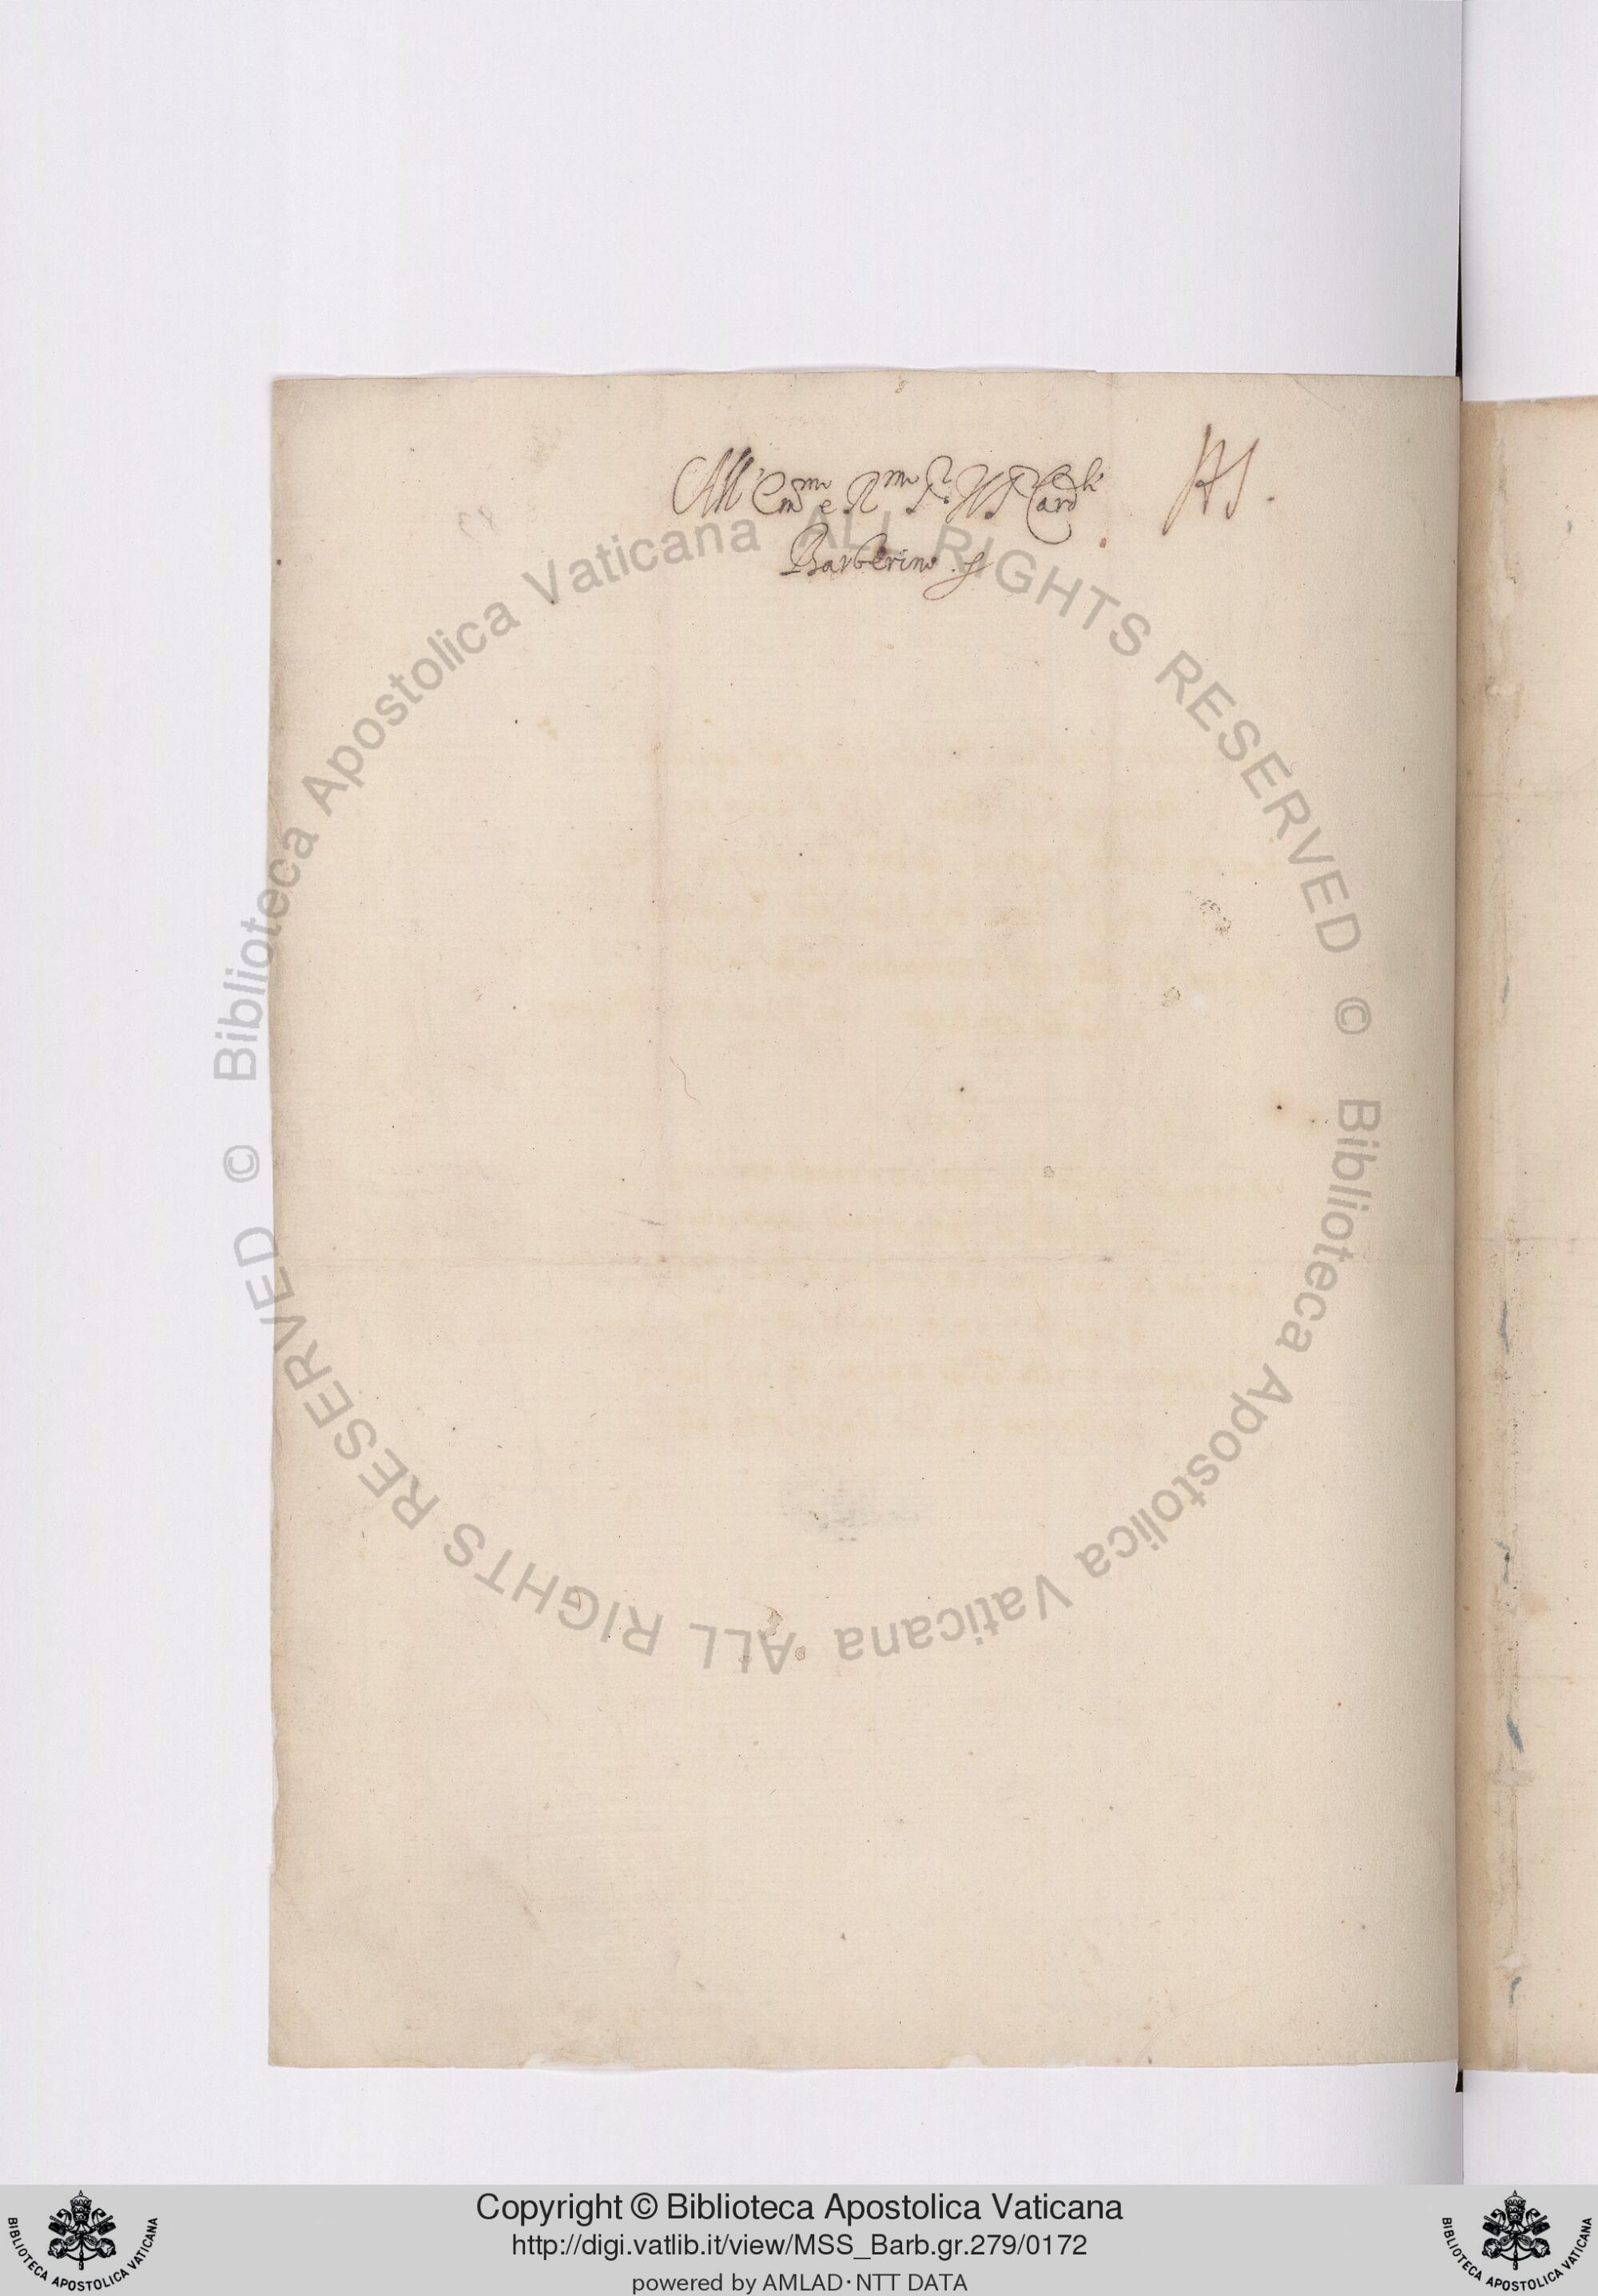 All' Em.mo e R.mo S.r Card.le
Barberino
© Biblioteca Apostolica Vaticana ALL RIGHTS RESERVED © Biblioteca Apostolica Vaticana ALL RIGHTS RESERVED
BIBLIOTECA APOSTOLICA VATICANA
Copyright © Biblioteca Apostolica Vaticana
http://digi.vatlib.it/view/MSS_Barb.gr.279/0172
powered by AMLAD·NTT DATA
BIBLIOTECA APOSTOLICA VATICANA